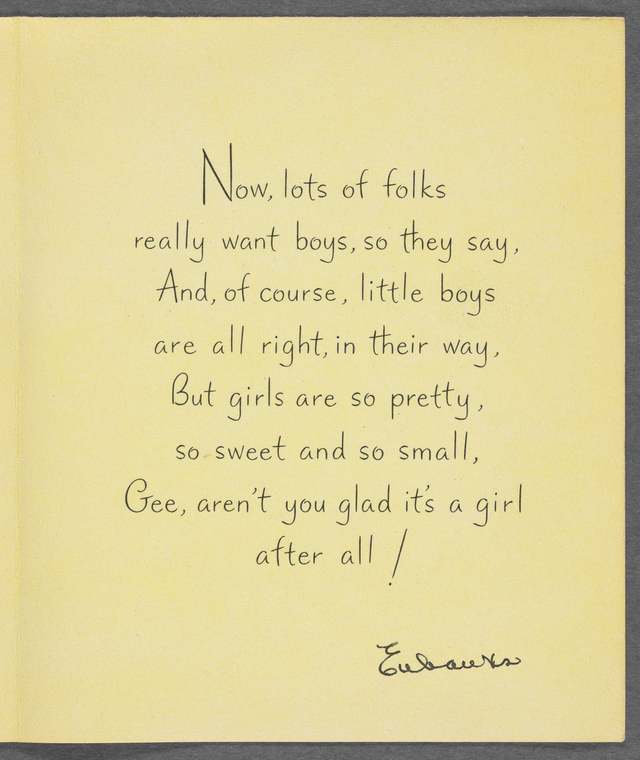 Now, lots of folks
really want boys, so they say,
And, of course, little boys
are all right, in their way,
But girls are so pretty,
so sweet and so small,
Gee, aren't you glad it's a girl
after all!
Eubanks